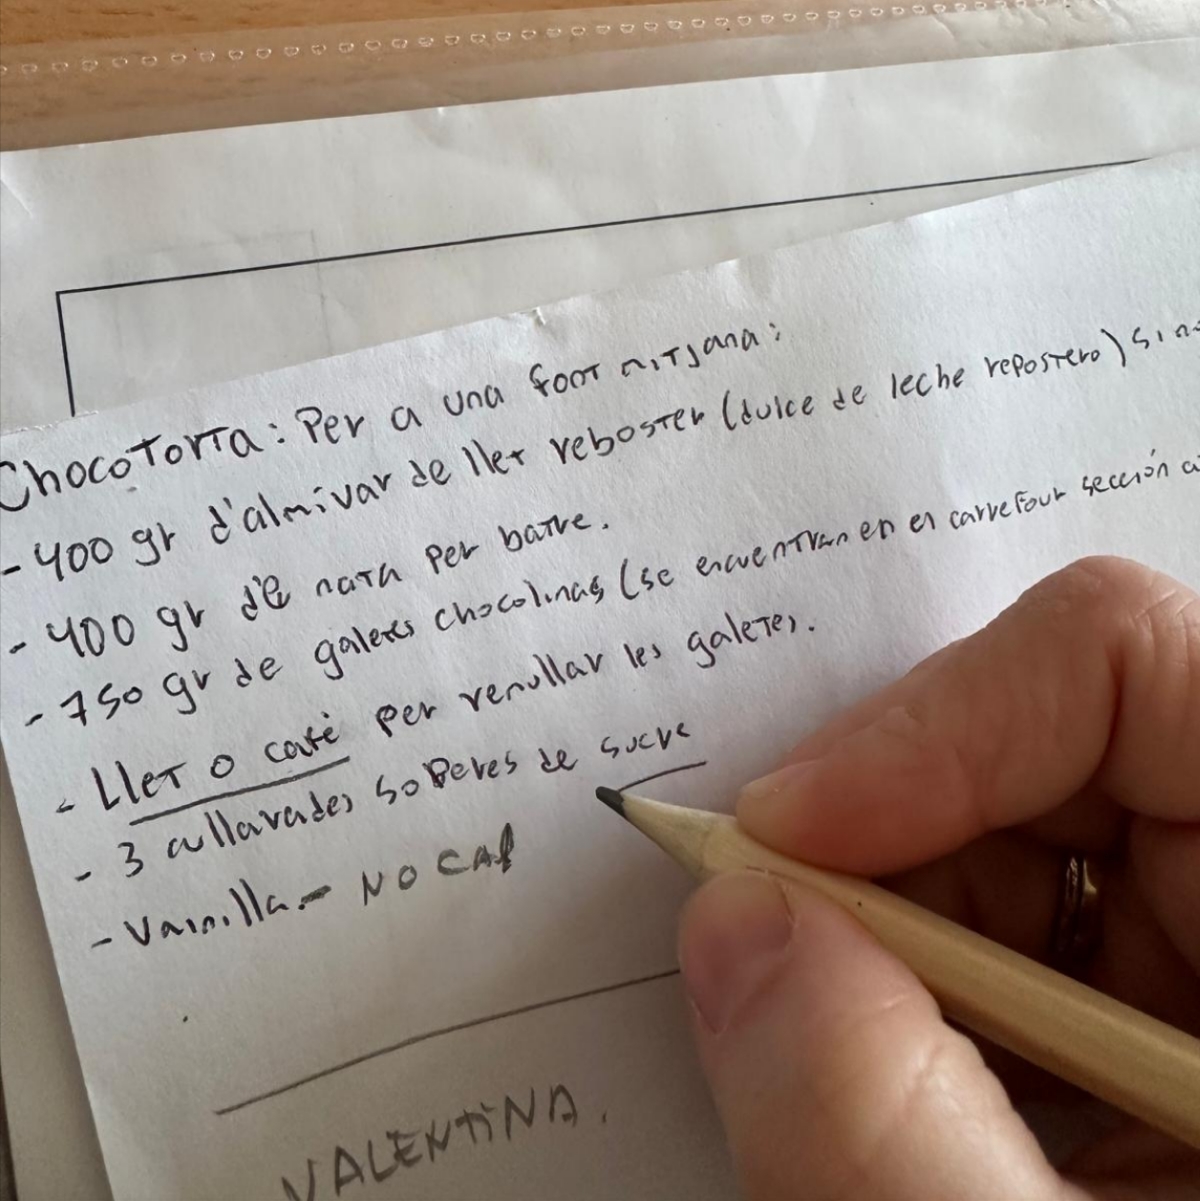 ChocoTorTa: Per a una font mitjana:
-400 gr d'almivar de llet reboster (dulce de leche repostero) sino
-400 gr de nata per batre.
-750 gr de galetes chocolinas (se encuentran en el carrefour sección
- Llet o cafè per remullar les galetes.
- 3 cullarades soperes de sucre
- Vainilla.- NO CAL
VALENTINA.